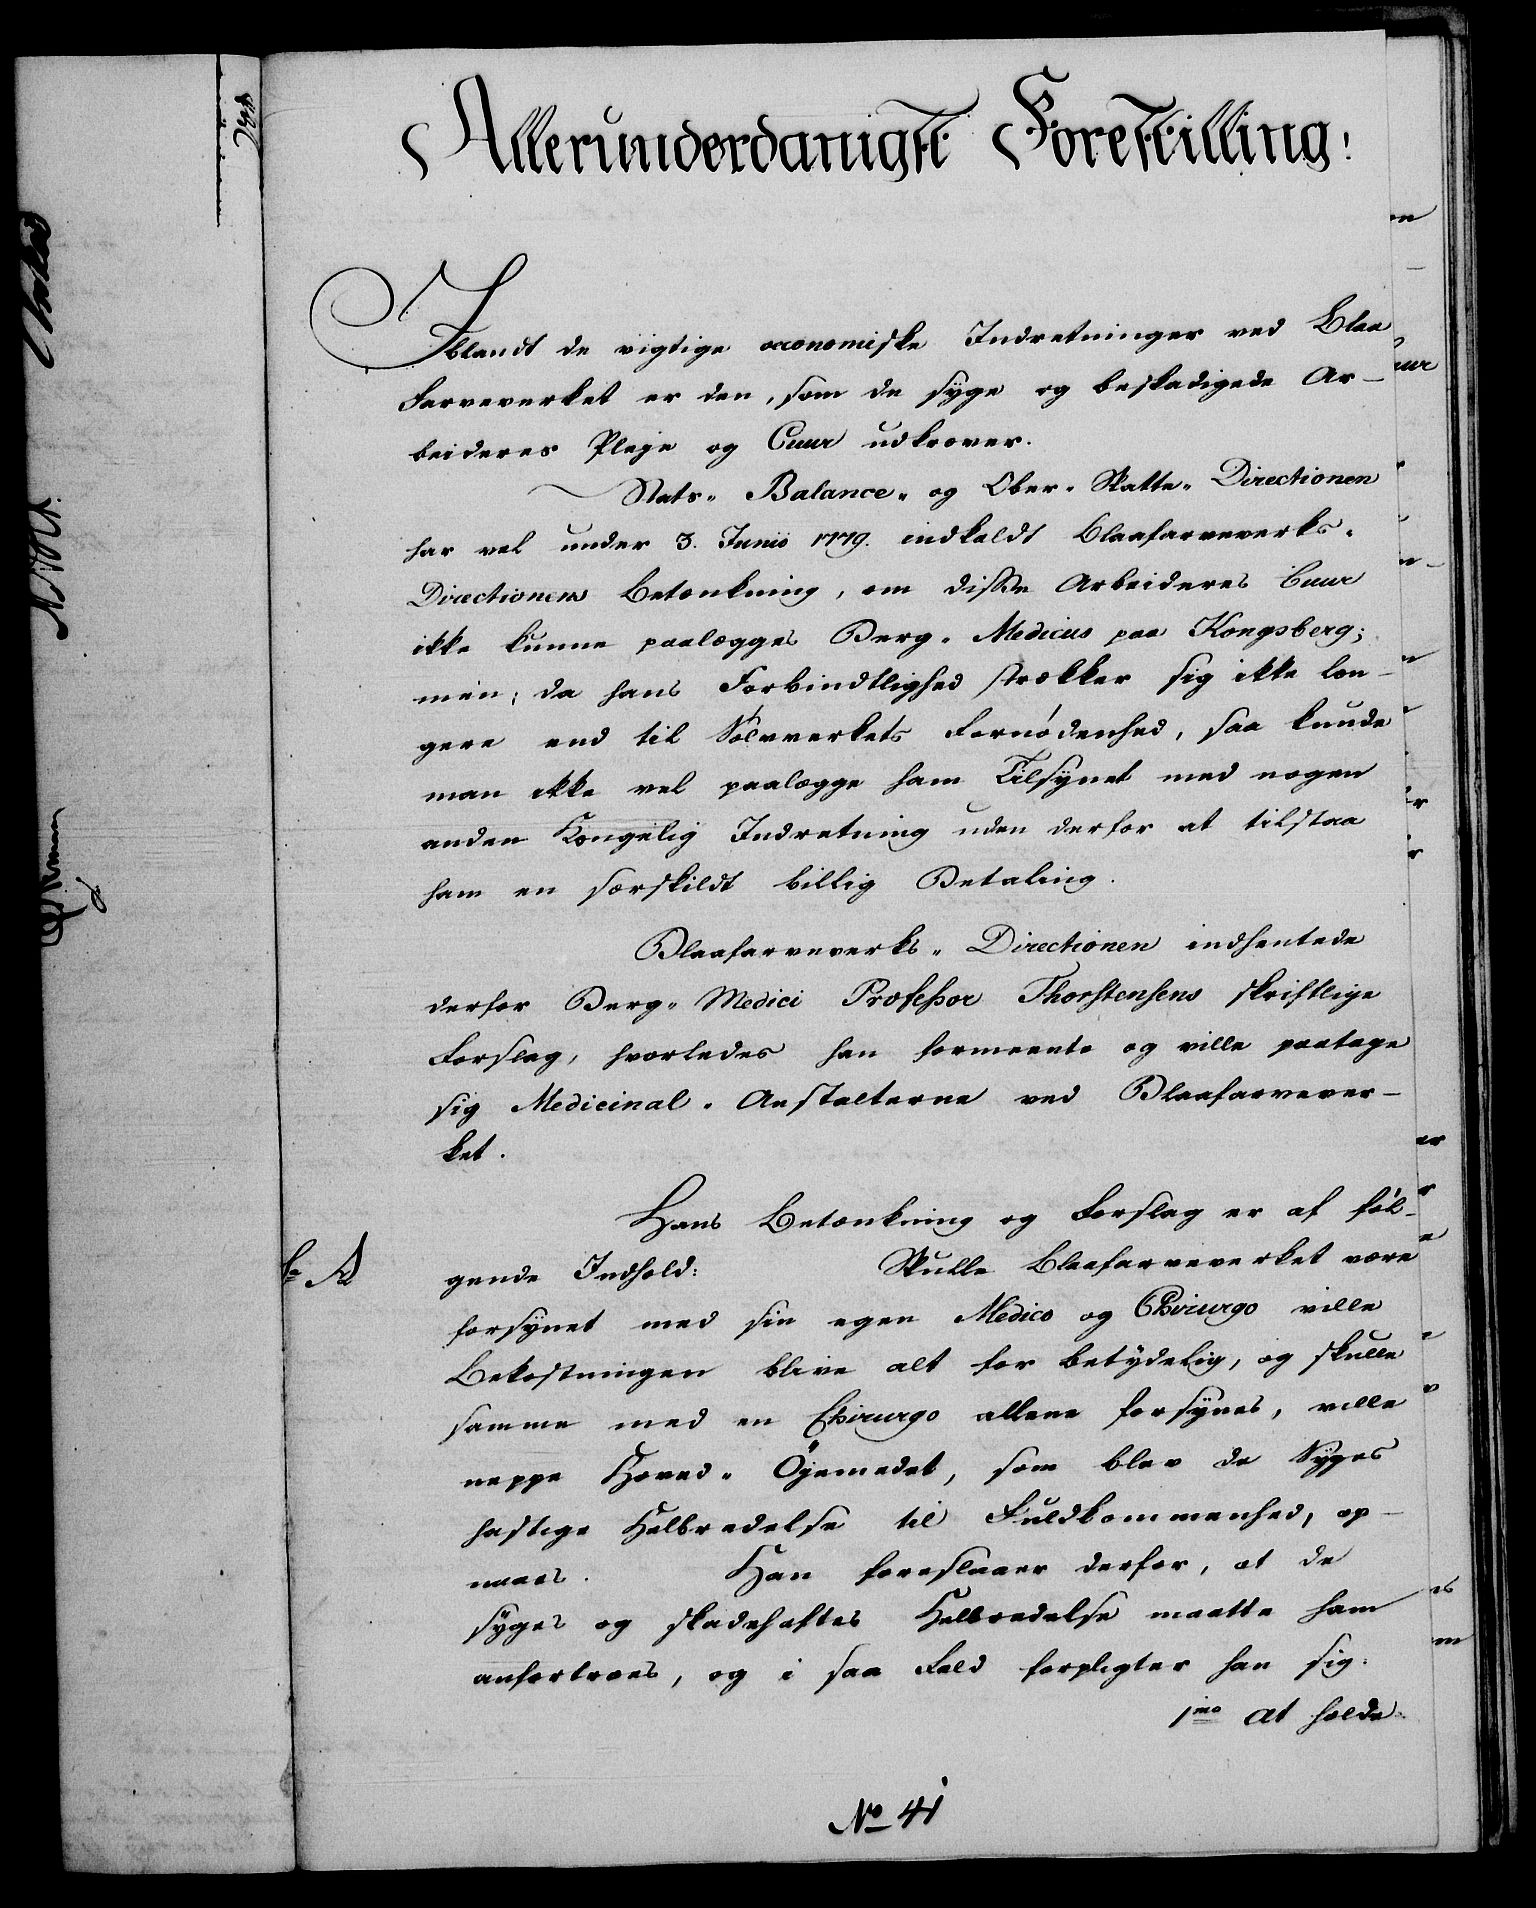 Allerunderdanigst Forestilling!
Iblandt de vigtige oeconomiske Indretninger ved Blaa
Farveverket er den, som de syge og beskadigede Ar-
beideres Pleje og Cuur udkræver.
Stats- Balance- og Ober- Skatte- Directionen
har vel under 3. Junii 1779. indkaldt Blaafarveverks-
Directionens Betænkning, om disse Arbeideres Cuur
ikke kunne paalægges Berg- Medicus paa Kongsberg;
men, da hans Forbindtlighed strækker sig ikke læn-
gere end til Sølvverkets Fornødenhed, saa kunde
man ikke vel paalægge ham Tilsynet med nogen
anden Kongelig Indretning uden derfor at tilstaa
ham en særskildt billig Betaling.
Blaafarveverks- Directionen indhentede
derfor Berg- Medici Professor Thorstensens skriftlige
Forslag, hvorledes han formeente og ville paatage
sig Medicinal- Anstalterne ved Blaafarvever-
ket.
Hans Betænkning og Forslag er af føl-
A
gende Indhold: Skulle Blaafarveverket være
forsynet med sin egen Medico og Chirurgo ville
Bekostningen blive alt for betydelig, og skulle
samme med en Chirurgo allene forsynes, ville
neppe Hoved- Öjemedet, som blev de Syges
hastige Helbredelse til Fuldkommenhed, op-
naaes. Han foreslaaer derfor, at de
syges og skadehaftes Helbredelse maatte ham
anfortroes, og i saa Fald forpligter han sig.
1mo at holde
No 41